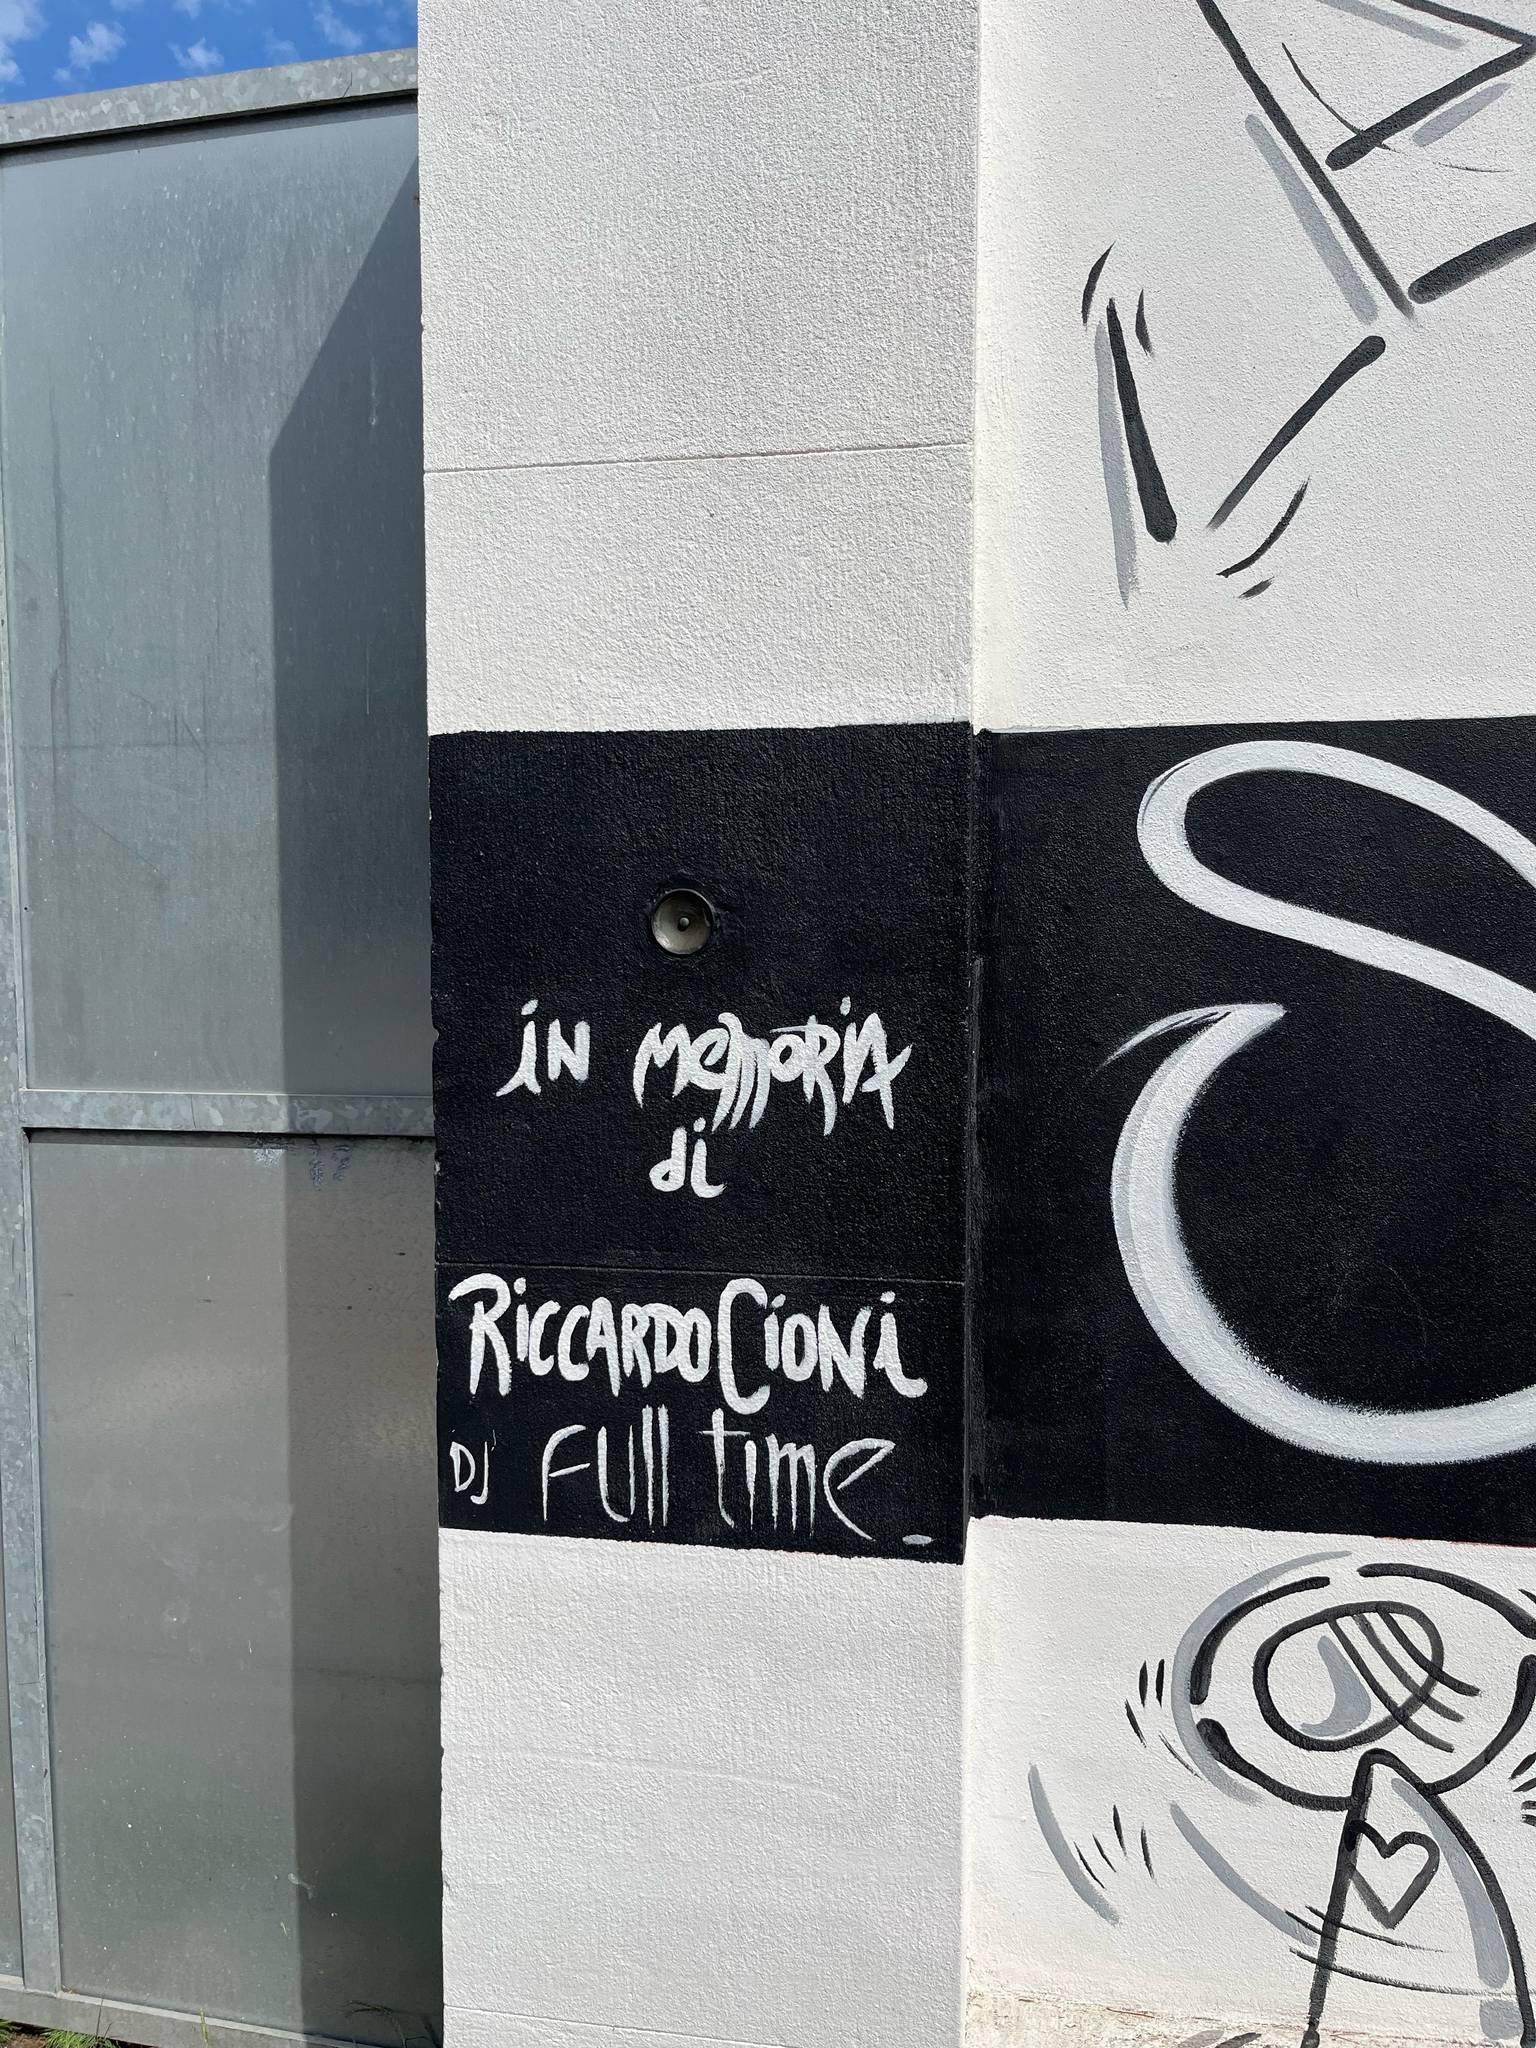 in memoria
di
Riccardo Cioni
DJ Full time